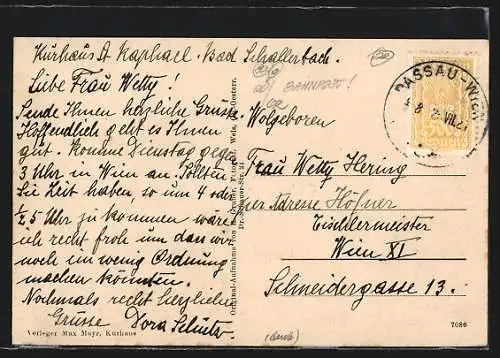 Kurhaus St Raphael. Bad Schallerbach.
Liebe Frau Wetty!
Sende Ihnen herzliche Grüsse.
Hoffendlich geht es Ihnen
gut. Komme Dienstag gegen
3 Uhr in Wien an. Sollten
Sie Zeit haben, so um 4 oder
½ 5 Uhr zu kommen wäre
ich recht froh um dan wir
noch ein wenig Ordnung
machen könnten.
Nochmals recht herzlichen
Grüsse Dora
Verleger Max Mayr, Kurhaus
Original-Aufnahme von Photogr. Wels, Ob.-Oesterr.
Dr. Schauer-Str. 21
BAHNPOST!
PASSAU-WIEN
8 2 VII 2
Wolgeboren
Frau Wetty Hering
per Adresse Höfner
Tischlermeister
Wien XI
Schneidergasse 13.
7086